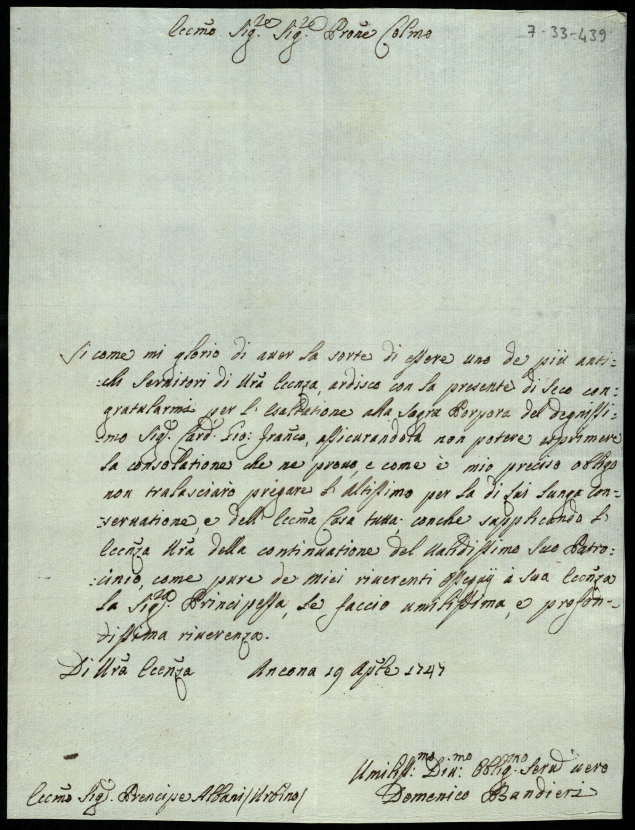 Eccmo Sig.re Sig.re Prone Colmo
7-33-439
Si come mi glorio di aver la sorte di essere uno de più anti-
:chi Servitori di Vra Eccnza, ardisco con la presente di seco con-
gratularmi per l'esaltatione alla Sagra Porpora del degnissi-
:mo Sig.r Card. Gio: Franco, assicurandola non potere esprimere
la consolatione che ne provo, e come è mio preciso obligo
non tralasciarò pregare l'Altissimo per la di lui lunga con-
:servatione, e dell'Eccma Casa tutta: conche supplicando l'
Eccnza Vra della continuatione del validissimo suo Patro-
:cinio, come pure de miei riverenti ossequij a sua Eccnza
la Sig.re Principessa, le faccio umilissima, e profon-
:dissima riverenza.
Di Vra Eccnza Ancona 19 Aple 1747
Umiliss:mo Div:mo Oblig.mo Serv vero
Domenico Bandieri
Eccmo Sig.r Prencipe Albani /Urbino/